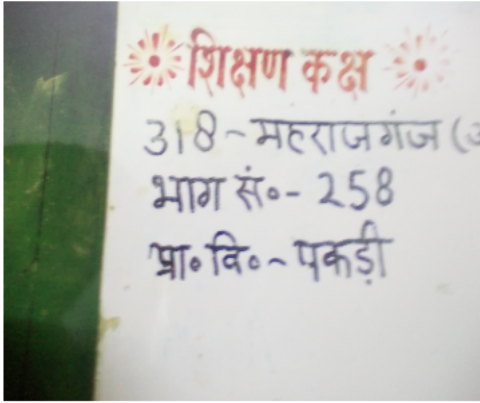 शिक्षण कक्ष
318-महराजगंज (
भाग सं०- 258
प्रा०वि०-पकड़ी